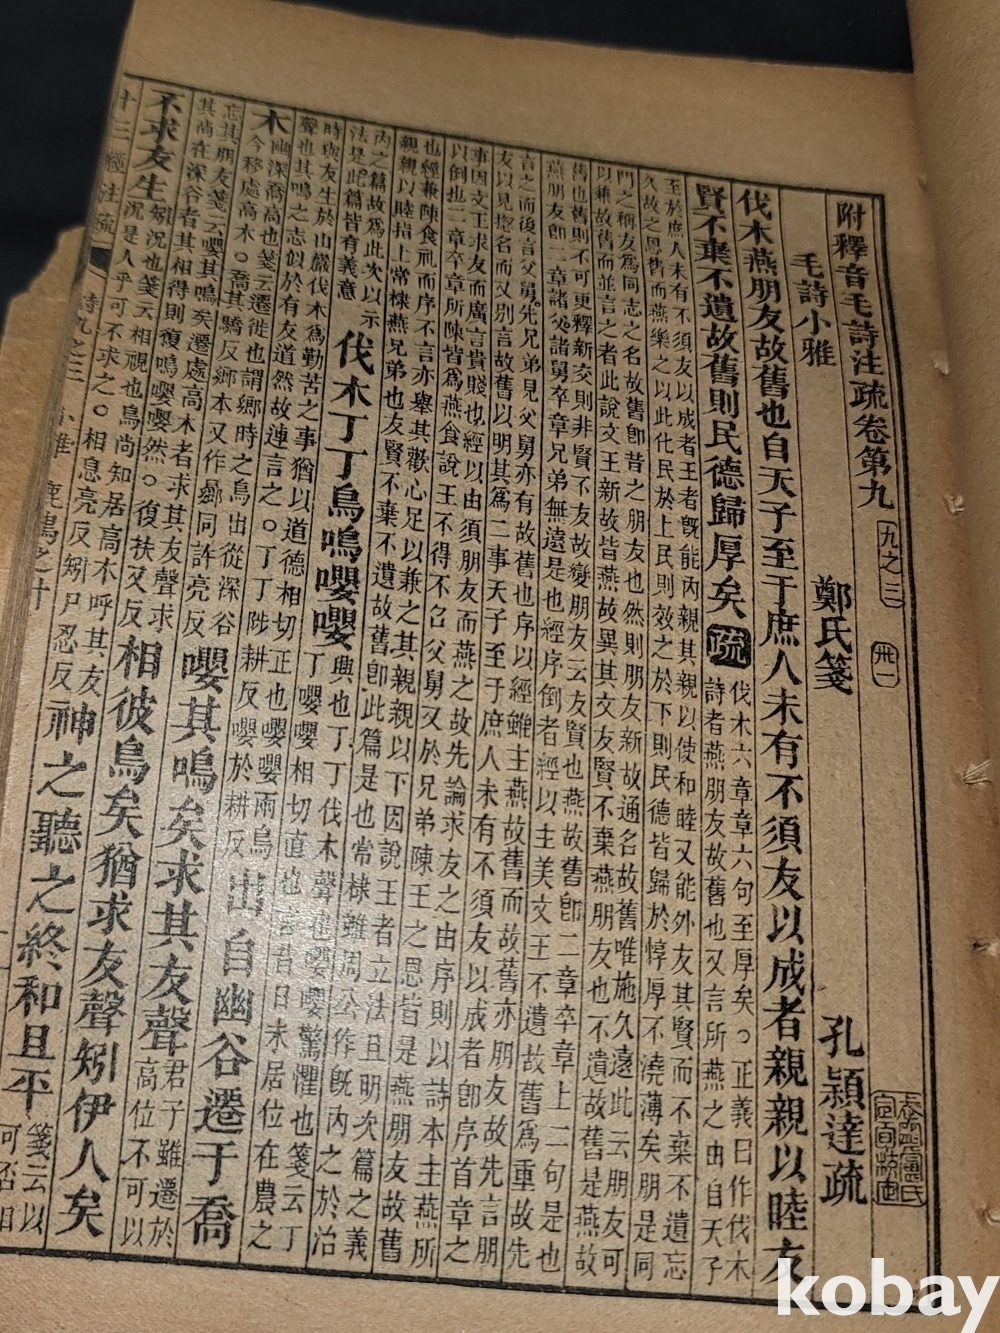 附釋音毛詩注疏卷第九 九之三 卅一
毛詩小雅 鄭氏箋 孔穎達疏
伐木燕朋友故舊也自天子至于庶人未有不須友以成者親親以睦友
賢不棄不遺故舊則民德歸厚矣 疏
伐木六章章六句至厚矣。正義曰作伐木
詩者燕朋友故舊也又言所燕之由自天子
至於庶人未有不須友以成者王者旣能內親其親以使和睦又能外友其賢而不棄不遺忘
久故之恩舊而燕樂之以此化民於上民則效之於下則民德皆歸於惇厚不澆薄矣朋是同
門之稱友爲同志之名故舊卽昔之朋友也然則朋友新故通名故舊唯施久遠此云朋友可
以兼故舊而並言之者此說文王新故皆燕故異其文友賢不棄燕朋友也不遺故舊是燕故
舊也舊則不可更釋新交則非賢不友故變朋友云友賢也燕故舊卽二章卒章上二句是也
燕朋友卽二章諸父諸舅卒章兄弟無遠是也經序倒者經以主美文王不遺故舊爲重故先
言之而後言父舅先兄弟見父舅亦有故舊也序以經雖主燕故舊而故舊亦朋友故先言朋
友以見揔名而又別言故舊以明其爲二事天子至于庶人未有不須友以成者卽序首章之
事因文王求友而廣言貴賤也經以由須朋友而燕之故先論求友之由序則以詩本主燕所
以倒也二章卒章所陳皆爲燕食說王不得不召父舅又於兄弟陳王之恩皆是燕朋友故舊
也經兼陳食礼而序不言亦舉其歡心足以兼之其親親以下因說王者立法且明次篇之義
親親以睦指上常棣燕兄弟也友賢不棄不遺故舊卽此篇是也常棣雖周公作旣內之於治
內之篇故爲此次以示
法是此篇皆有義意
伐木丁丁鳥鳴嚶嚶
興也丁丁伐木聲也嚶嚶驚懼也箋云丁
丁嚶嚶相切直也言昔日未居位在農之
時與友生於山巖伐木爲勤苦之事猶以道德相切正也嚶嚶兩鳥
聲也其鳴之志似於有友道然故連言之。丁丁陟耕反嚶於耕反
出自幽谷遷于喬
木
幽深喬高也箋云遷徙也謂鄉時之鳥出從深谷
今移處高木。喬其驕反鄉本又作曏同許亮反
嚶其鳴矣求其友聲
君子雖遷於
高位不可以
忘其朋友箋云嚶其鳴矣遷處高木者求其友聲求
其尚在深谷者其相得則復鳴嚶嚶然。復扶又反
相彼鳥矣猶求友聲矧伊人矣
不求友生
矧況也箋云相視也鳥尚知居高木呼其友
況是人乎可不求之。相息亮反矧尸忍反
神之聽之終和且平
箋云以
可否相
十三經注疏 詩九之三 小雅 鹿鳴之什
kobay